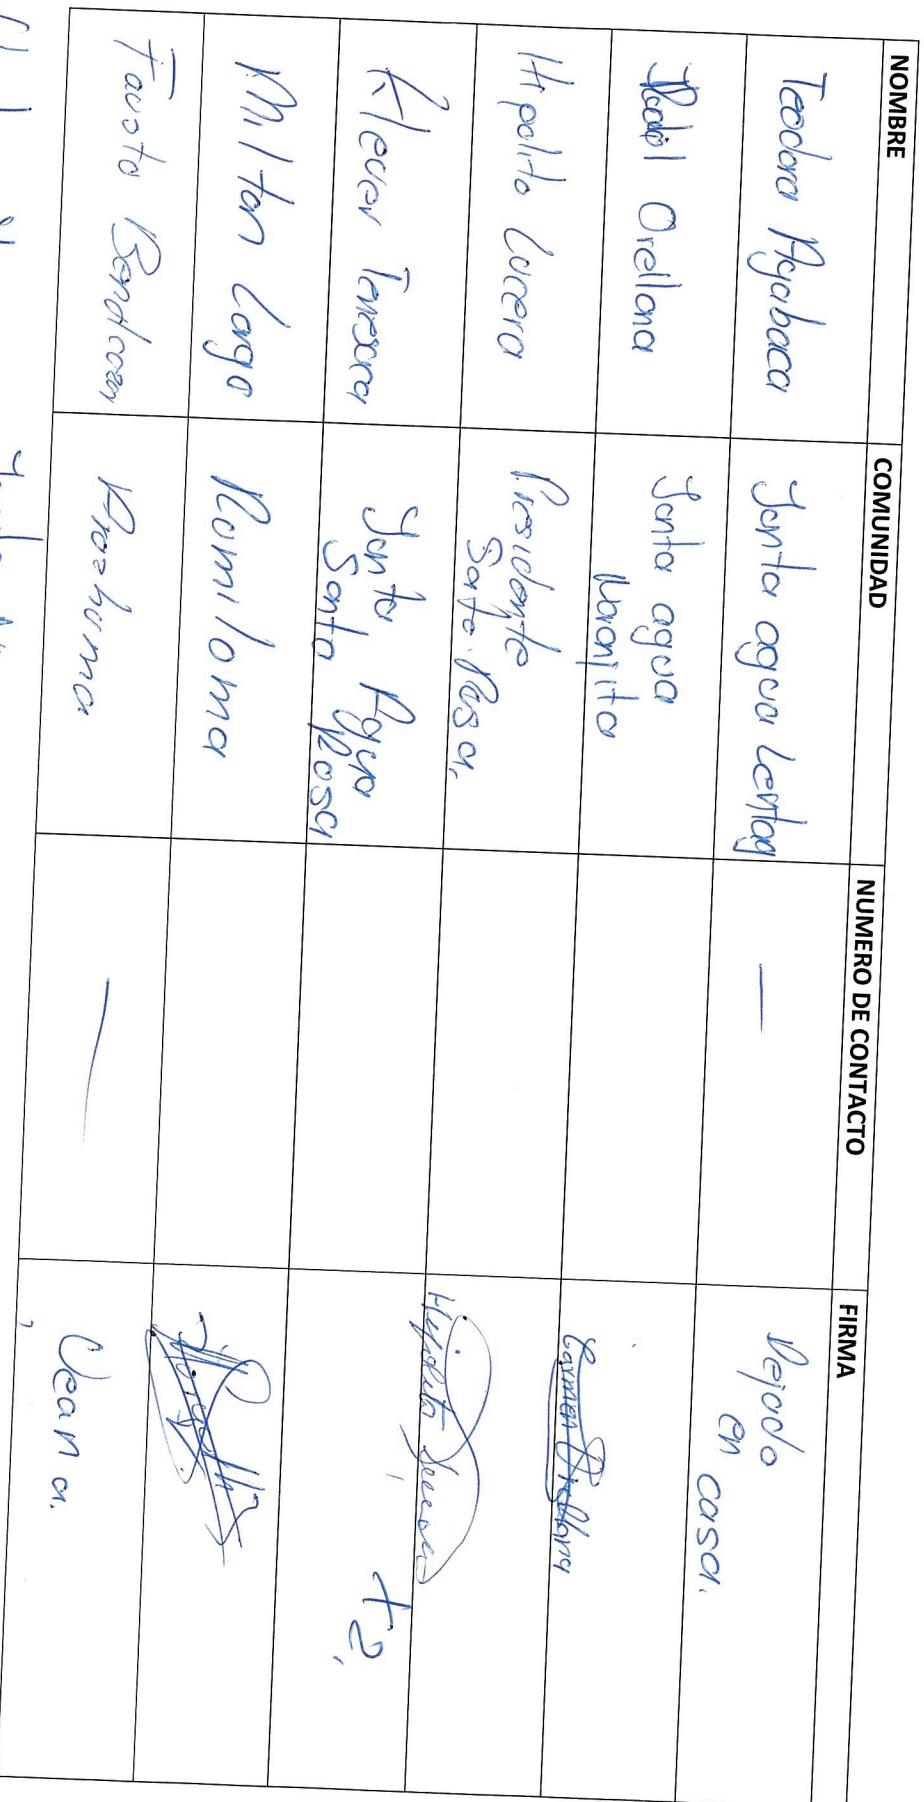 NOMBRE COMUNIDAD NUMERO DE CONTACTO FIRMA
Teodora Ayabaca Junta agua Lentag — Dejado en casa.
Orellana Junta agua Naranjito Carmen Orellana
Hipolito Lucera Presidente Santa Rosa. Hipolito
Klever Junta Agua Santa Rosa +2,
Milton Largo Romiloma
Fausto — Vecana.